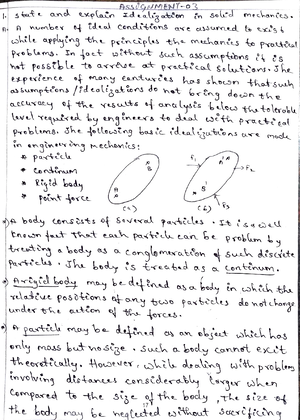 ASSIGNMENT-03
1. state and explain Idealization in solid mechanics.
A. A number of ideal conditions are assumed to exist
while applying the principles the mechanics to practical
problems. In fact without such assumptions it is
not possible to arrive at practical solutions. The
experience of many centuries has shown that such
assumptions / idealizations do not bring down the
accuracy of the results of analysis below the tolerable
level required by engineers to deal with practical
problems. The following basic idealizations are made
in engineering mechanics:
* particle
* continum
* Rigid body
* point force
A B
(a)
F1 A F2
B F3
(b)
A body consists of several particles. It is a well
known fact that each particle can be problem by
treating a body as a conglomeration of such discrete
particles. The body is treated as a continum.
A rigid body may be defined as a body in which the
relative positions of any two particles do not change
under the action of the forces.
A particle may be defined as an object which has
only mass but no size. Such a body cannot exit
theoritically. However, while dealing with problem
involving distances considerably larger when
compared to the size of the body, The size of
the body may be neglected without sacrificing